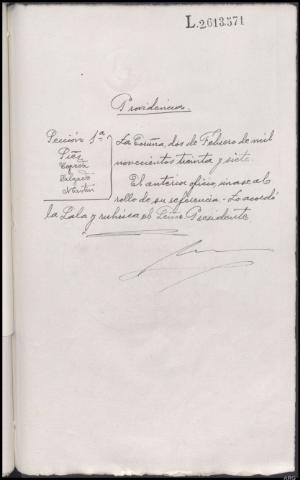 L.2613571
Providencia.
Sección 1ª
La Coruña, dos de Febrero de mil
novecientos treinta y siete.
El anterior oficio, únase al
rollo de su referencia - Lo acordó
la Sala y rubrica el Señor Presidente